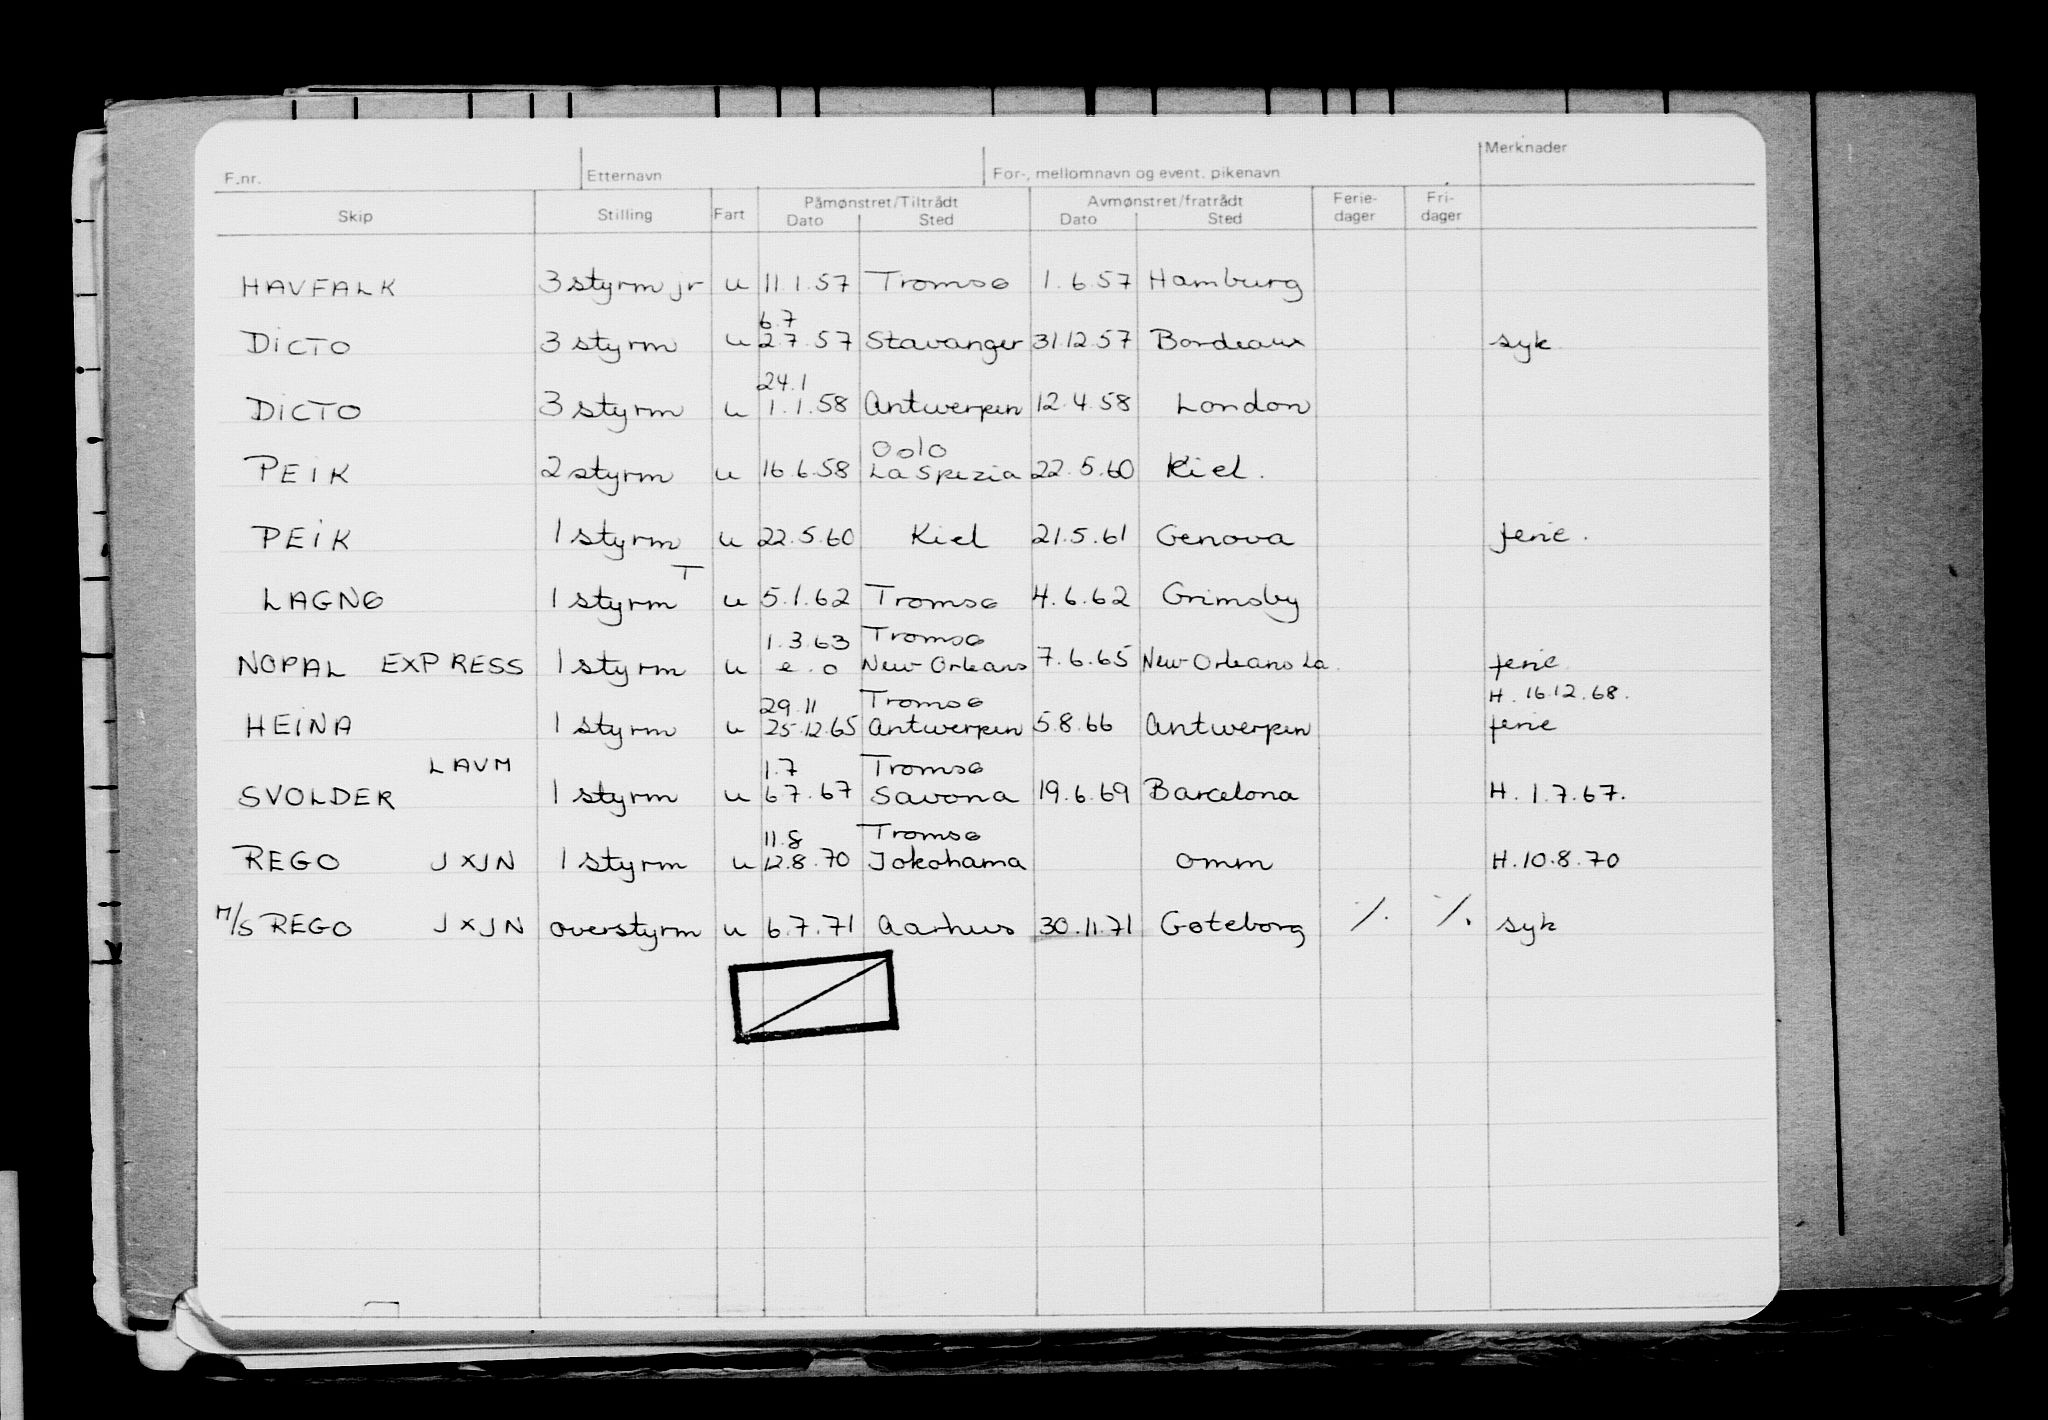 F.nr. Etternavn For-, mellomnavn og event. pikenavn Merknader
Skip Stilling Fart Påmønstret/Tiltrådt Dato Sted Avmønstret/fratrådt Dato Sted Ferie-dager Fri-dager
HAVFALK 3 styrm jr u 11.1.57 Tromsø 1.6.57 Hamburg
6.7
DICTO 3 styrm u 2.7.57 Stavanger 31.12.57 Bordeaux syk
24.1
DICTO 3 styrm u 1.1.58 Antwerpen 12.4.58 London
Oslo
PEIK 2 styrm u 16.6.58 La Spezia 22.5.60 Kiel.
PEIK 1 styrm u 22.5.60 Kiel 21.5.61 Genova ferie.
T
LAGNØ 1 styrm u 5.1.62 Tromsø 4.6.62 Grimsby
1.3.63 Tromsø
NOPAL EXPRESS 1 styrm u e.o New Orleans 7.6.65 New Orleans La. ferie
29.11 Tromsø H. 16.12.68.
HEINA 1 styrm u 25.12.65 Antwerpen 5.8.66 Antwerpen ferie
LAVM 1.7 Tromsø
SVOLDER 1 styrm u 6.7.67 Savona 19.6.69 Barcelona H. 1.7.67.
11.8 Tromsø
REGO JXJN 1 styrm u 12.8.70 Jokohama omm H. 10.8.70
M/S REGO JXJN overstyrm u 6.7.71 Aarhus 30.11.71 Gøteborg ·/. ·/. syk